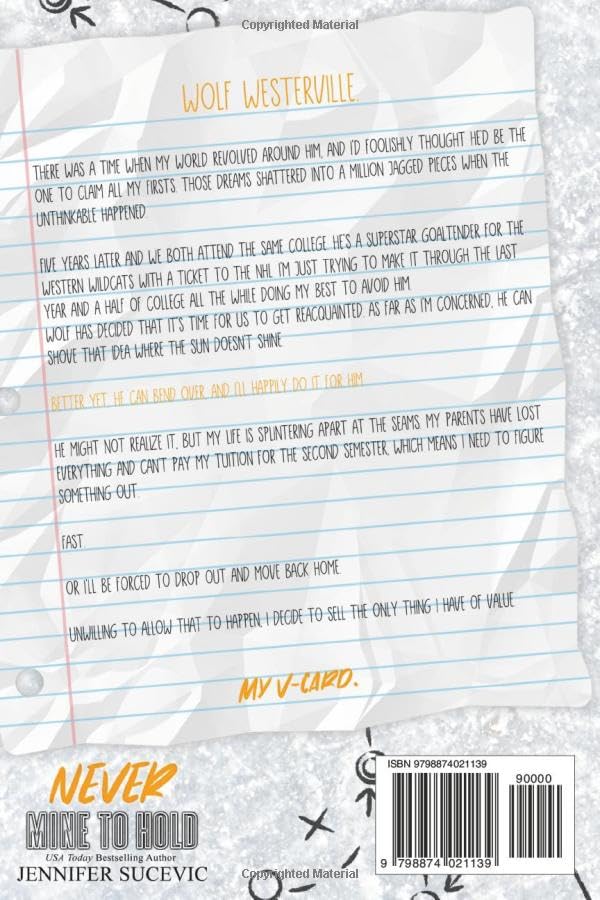 Copyrighted Material
WOLF WESTERVILLE.
THERE WAS A TIME WHEN MY WORLD REVOLVED AROUND HIM, AND I'D FOOLISHLY THOUGHT HE'D BE THE
ONE TO CLAIM ALL MY FIRSTS. THOSE DREAMS SHATTERED INTO A MILLION JAGGED PIECES WHEN THE
UNTHINKABLE HAPPENED.
FIVE YEARS LATER AND WE BOTH ATTEND THE SAME COLLEGE. HE'S A SUPERSTAR GOALTENDER FOR THE
WESTERN WILDCATS WITH A TICKET TO THE NHL. I'M JUST TRYING TO MAKE IT THROUGH THE LAST
YEAR AND A HALF OF COLLEGE ALL THE WHILE DOING MY BEST TO AVOID HIM.
WOLF HAS DECIDED THAT IT'S TIME FOR US TO GET REACQUAINTED. AS FAR AS I'M CONCERNED, HE CAN
SHOVE THAT IDEA WHERE THE SUN DOESN'T SHINE.
BETTER YET, HE CAN BEND OVER AND I'LL HAPPILY DO IT FOR HIM.
HE MIGHT NOT REALIZE IT, BUT MY LIFE IS SPLINTERING APART AT THE SEAMS. MY PARENTS HAVE LOST
EVERYTHING AND CAN'T PAY MY TUITION FOR THE SECOND SEMESTER, WHICH MEANS I NEED TO FIGURE
SOMETHING OUT.
FAST.
OR I'LL BE FORCED TO DROP OUT AND MOVE BACK HOME.
UNWILLING TO ALLOW THAT TO HAPPEN, I DECIDE TO SELL THE ONLY THING I HAVE OF VALUE.
MY V-CARD.
NEVER
MINE TO HOLD
USA Today Bestselling Author
JENNIFER SUCEVIC
ISBN 9798874021139
90000
9 798874 021139
Copyrighted Material